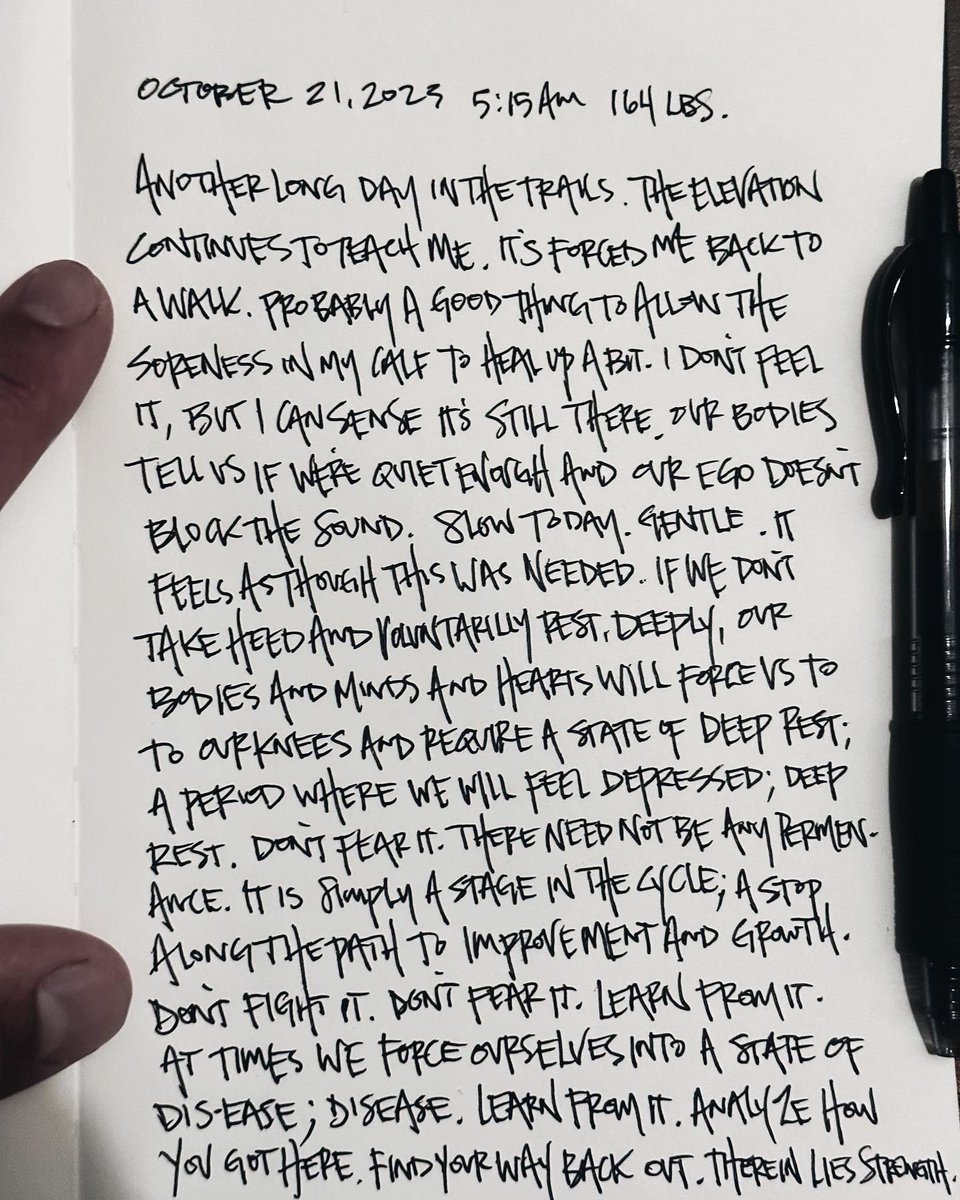 OCTOBER 21, 2023 5:15AM 164 LBS.
ANOTHER LONG DAY IN THE TRAILS. THE ELEVATION
CONTINUES TO TEACH ME. IT'S FORCED ME BACK TO
A WALK. PROBABLY A GOOD THING TO ALLOW THE
SORENESS IN MY CALF TO HEAL UP A BIT. I DON'T FEEL
IT, BUT I CAN SENSE IT'S STILL THERE. OUR BODIES
TELL US IF WE'RE QUIET ENOUGH AND OUR EGO DOESN'T
BLOCK THE SOUND. SLOW TODAY. GENTLE. IT
FEELS AS THOUGH THIS WAS NEEDED. IF WE DON'T
TAKE HEED AND VOLUNTARILLY REST, DEEPLY, OUR
BODIES AND MINDS AND HEARTS WILL FORCE US TO
TO OUR KNEES AND REQUIRE A STATE OF DEEP REST;
A PERIOD WHERE WE WILL FEEL DEPRESSED; DEEP
REST. DON'T FEAR IT. THERE NEED NOT BE ANY PERMEN-
ANCE. IT IS SIMPLY A STAGE IN THE CYCLE; A STOP
ALONG THE PATH TO IMPROVEMENT AND GROWTH.
DON'T FIGHT IT. DON'T FEAR IT. LEARN FROM IT.
AT TIMES WE FORCE OURSELVES INTO A STATE OF
DIS-EASE; DISEASE. LEARN FROM IT. ANALYZE HOW
YOU GOT HERE. FIND YOUR WAY BACK OUT. THEREIN LIES STRENGTH.